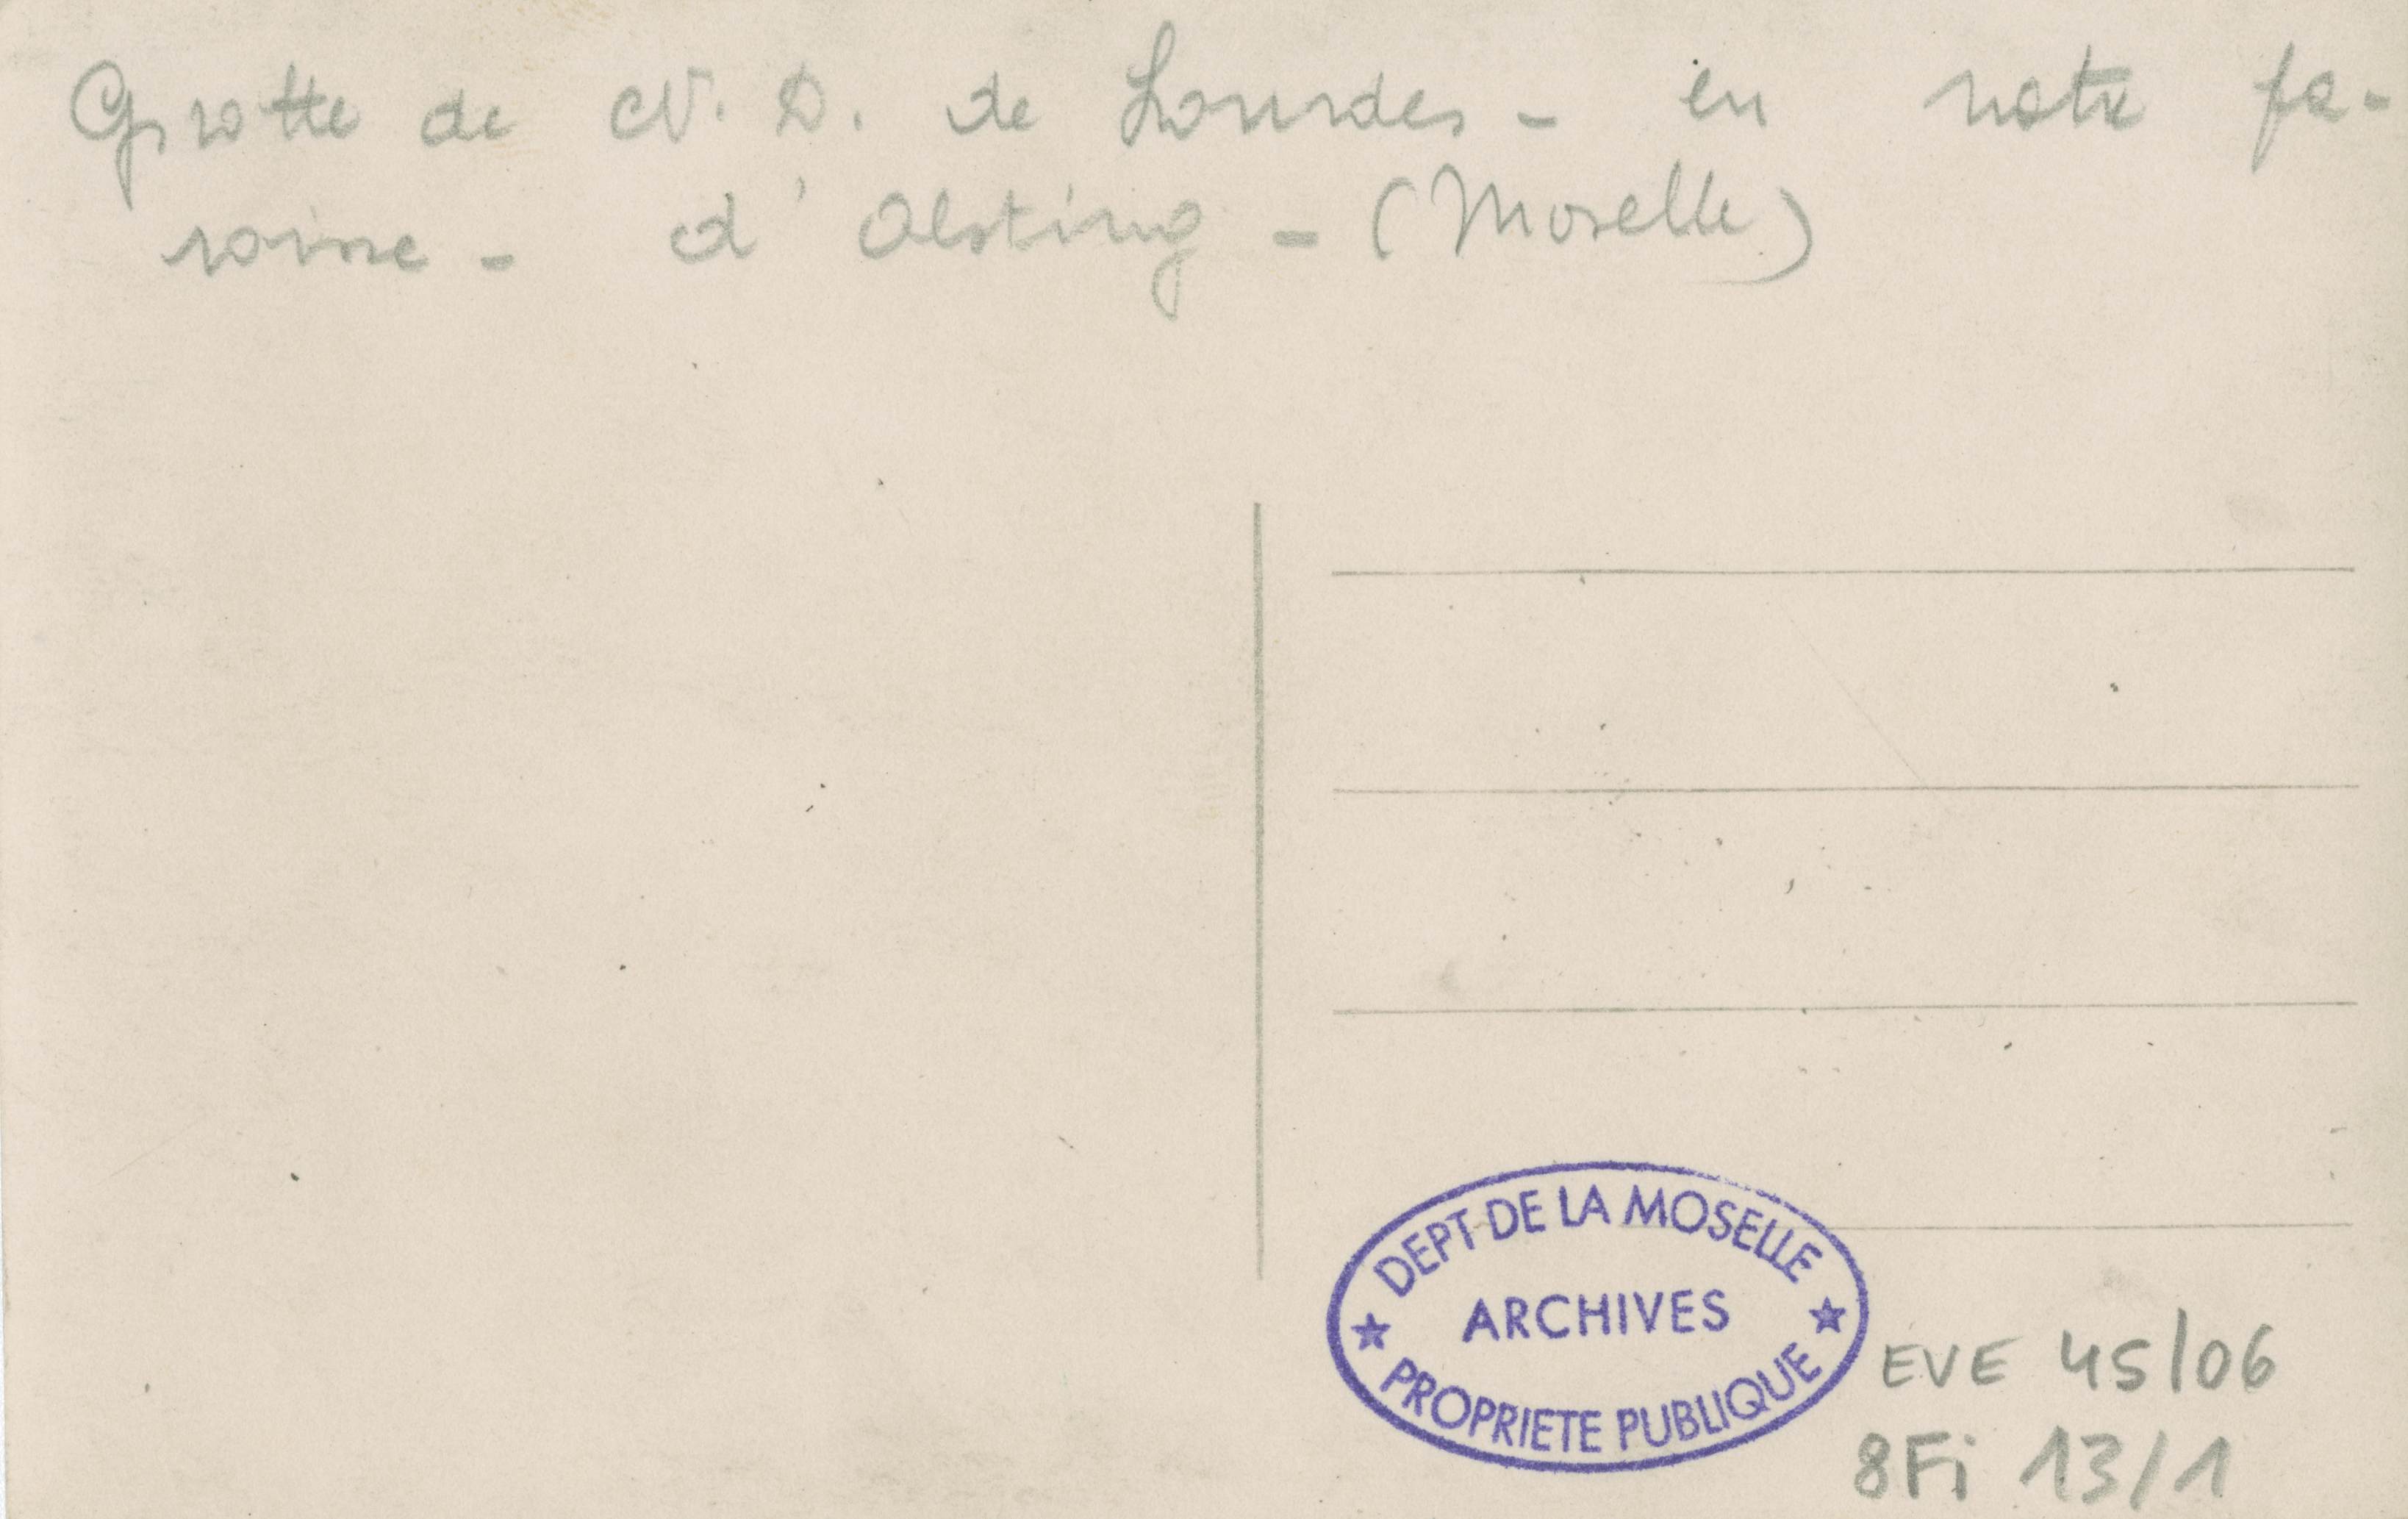 Grotte de N. D. de Lourdes - en notre pa-
roisse - d'Alsting - (Moselle)
DEPT DE LA MOSELLE
ARCHIVES
PROPRIETE PUBLIQUE
EVE 45/06
8Fi 13/1